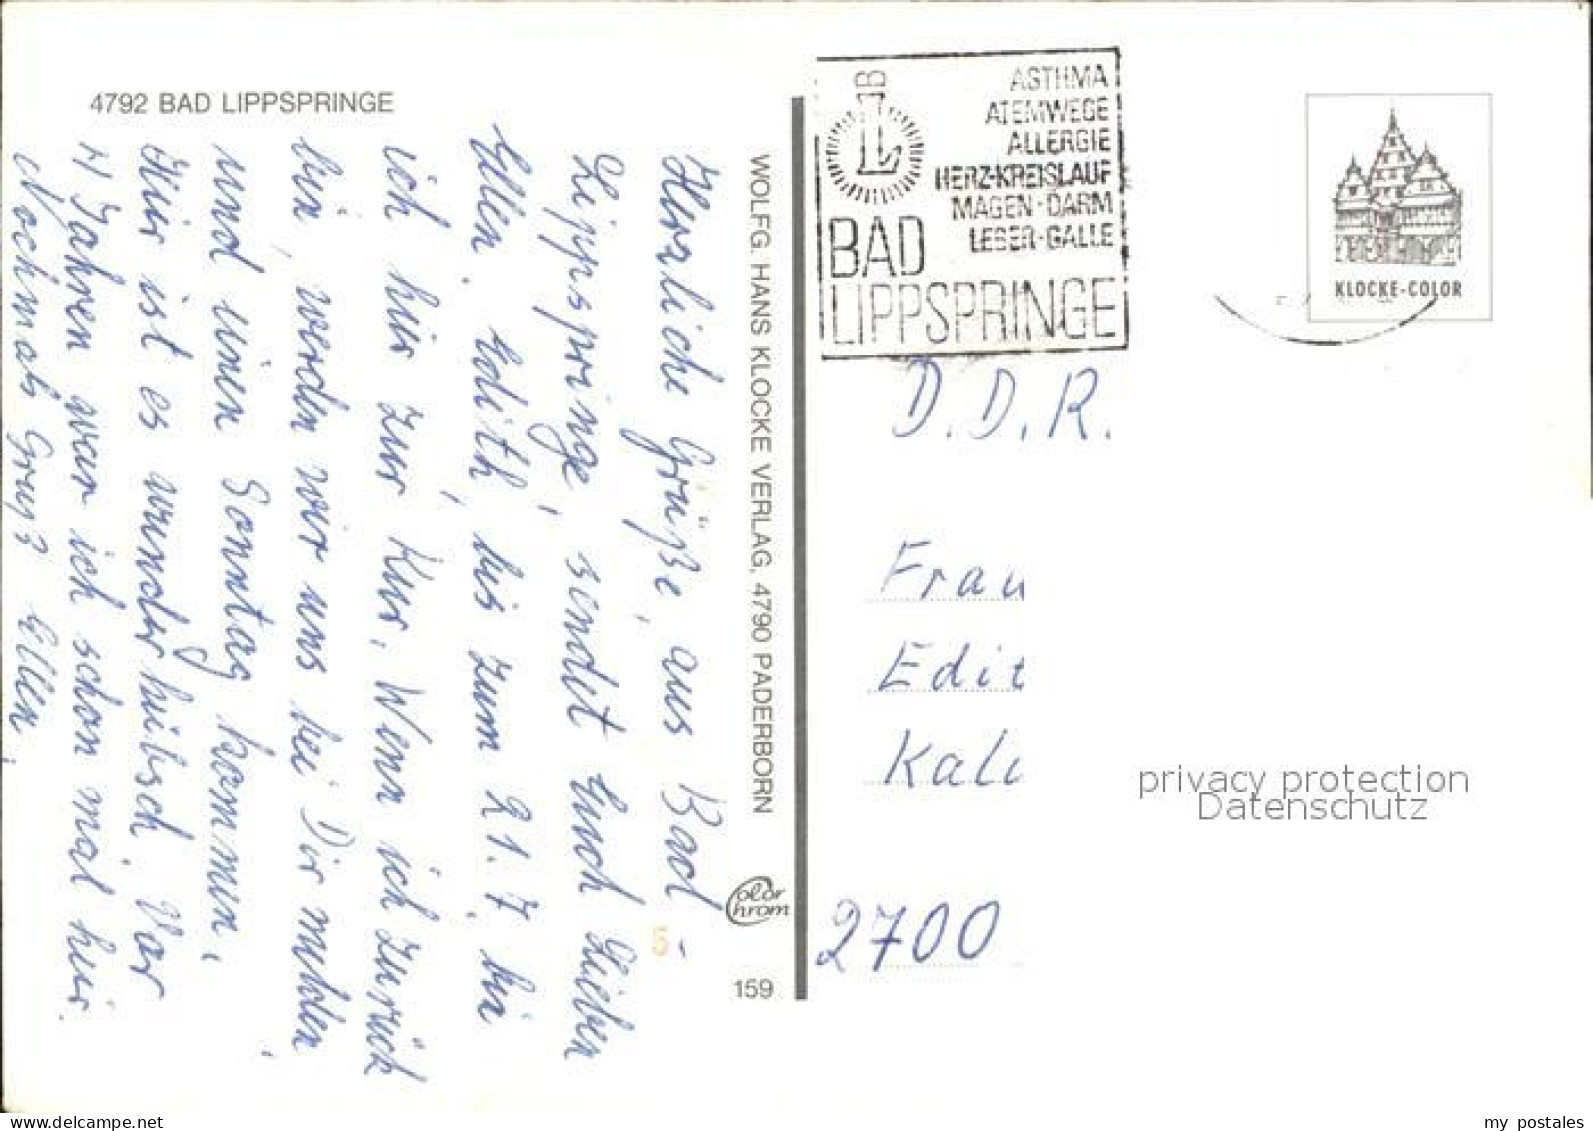 4792 BAD LIPPSPRINGE
Herzliche Grüße, aus Bad
Lippspringe, sendet Euch Lieben
Ellen. Edith, bis zum 21.7. bin
ich hier zur Kur. Wenn ich zurück
bin, werden wir uns bei Dir melden
und einen Sonntag kommen.
Hier ist es wunderhübsch. Vor
4 Jahren war ich schon mal hier.
Nochmals Gruß Ellen.
WOLFG. HANS KLOCKE VERLAG, 4790 PADERBORN
Color Chrom
159
5-
LB
ASTHMA
ATEMWEGE
ALLERGIE
HERZ-KREISLAUF
MAGEN-DARM
LEBER-GALLE
BAD
LIPPSPRINGE
KLOCKE-COLOR
D.D.R.
Frau
Edit
Kali
2700
privacy protection
Datenschutz
my postales